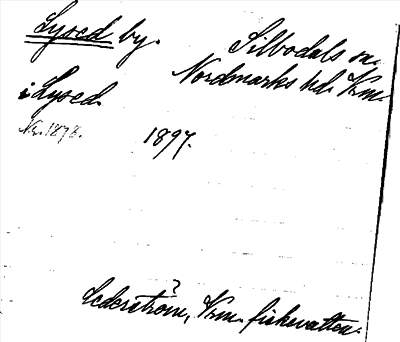 Lysed by.
Silbodals sn.
Nordmarks hd. Vrm.
i Lysed
No. 1878.
1897.
?
Cederström, Vrm. fiskevatten.